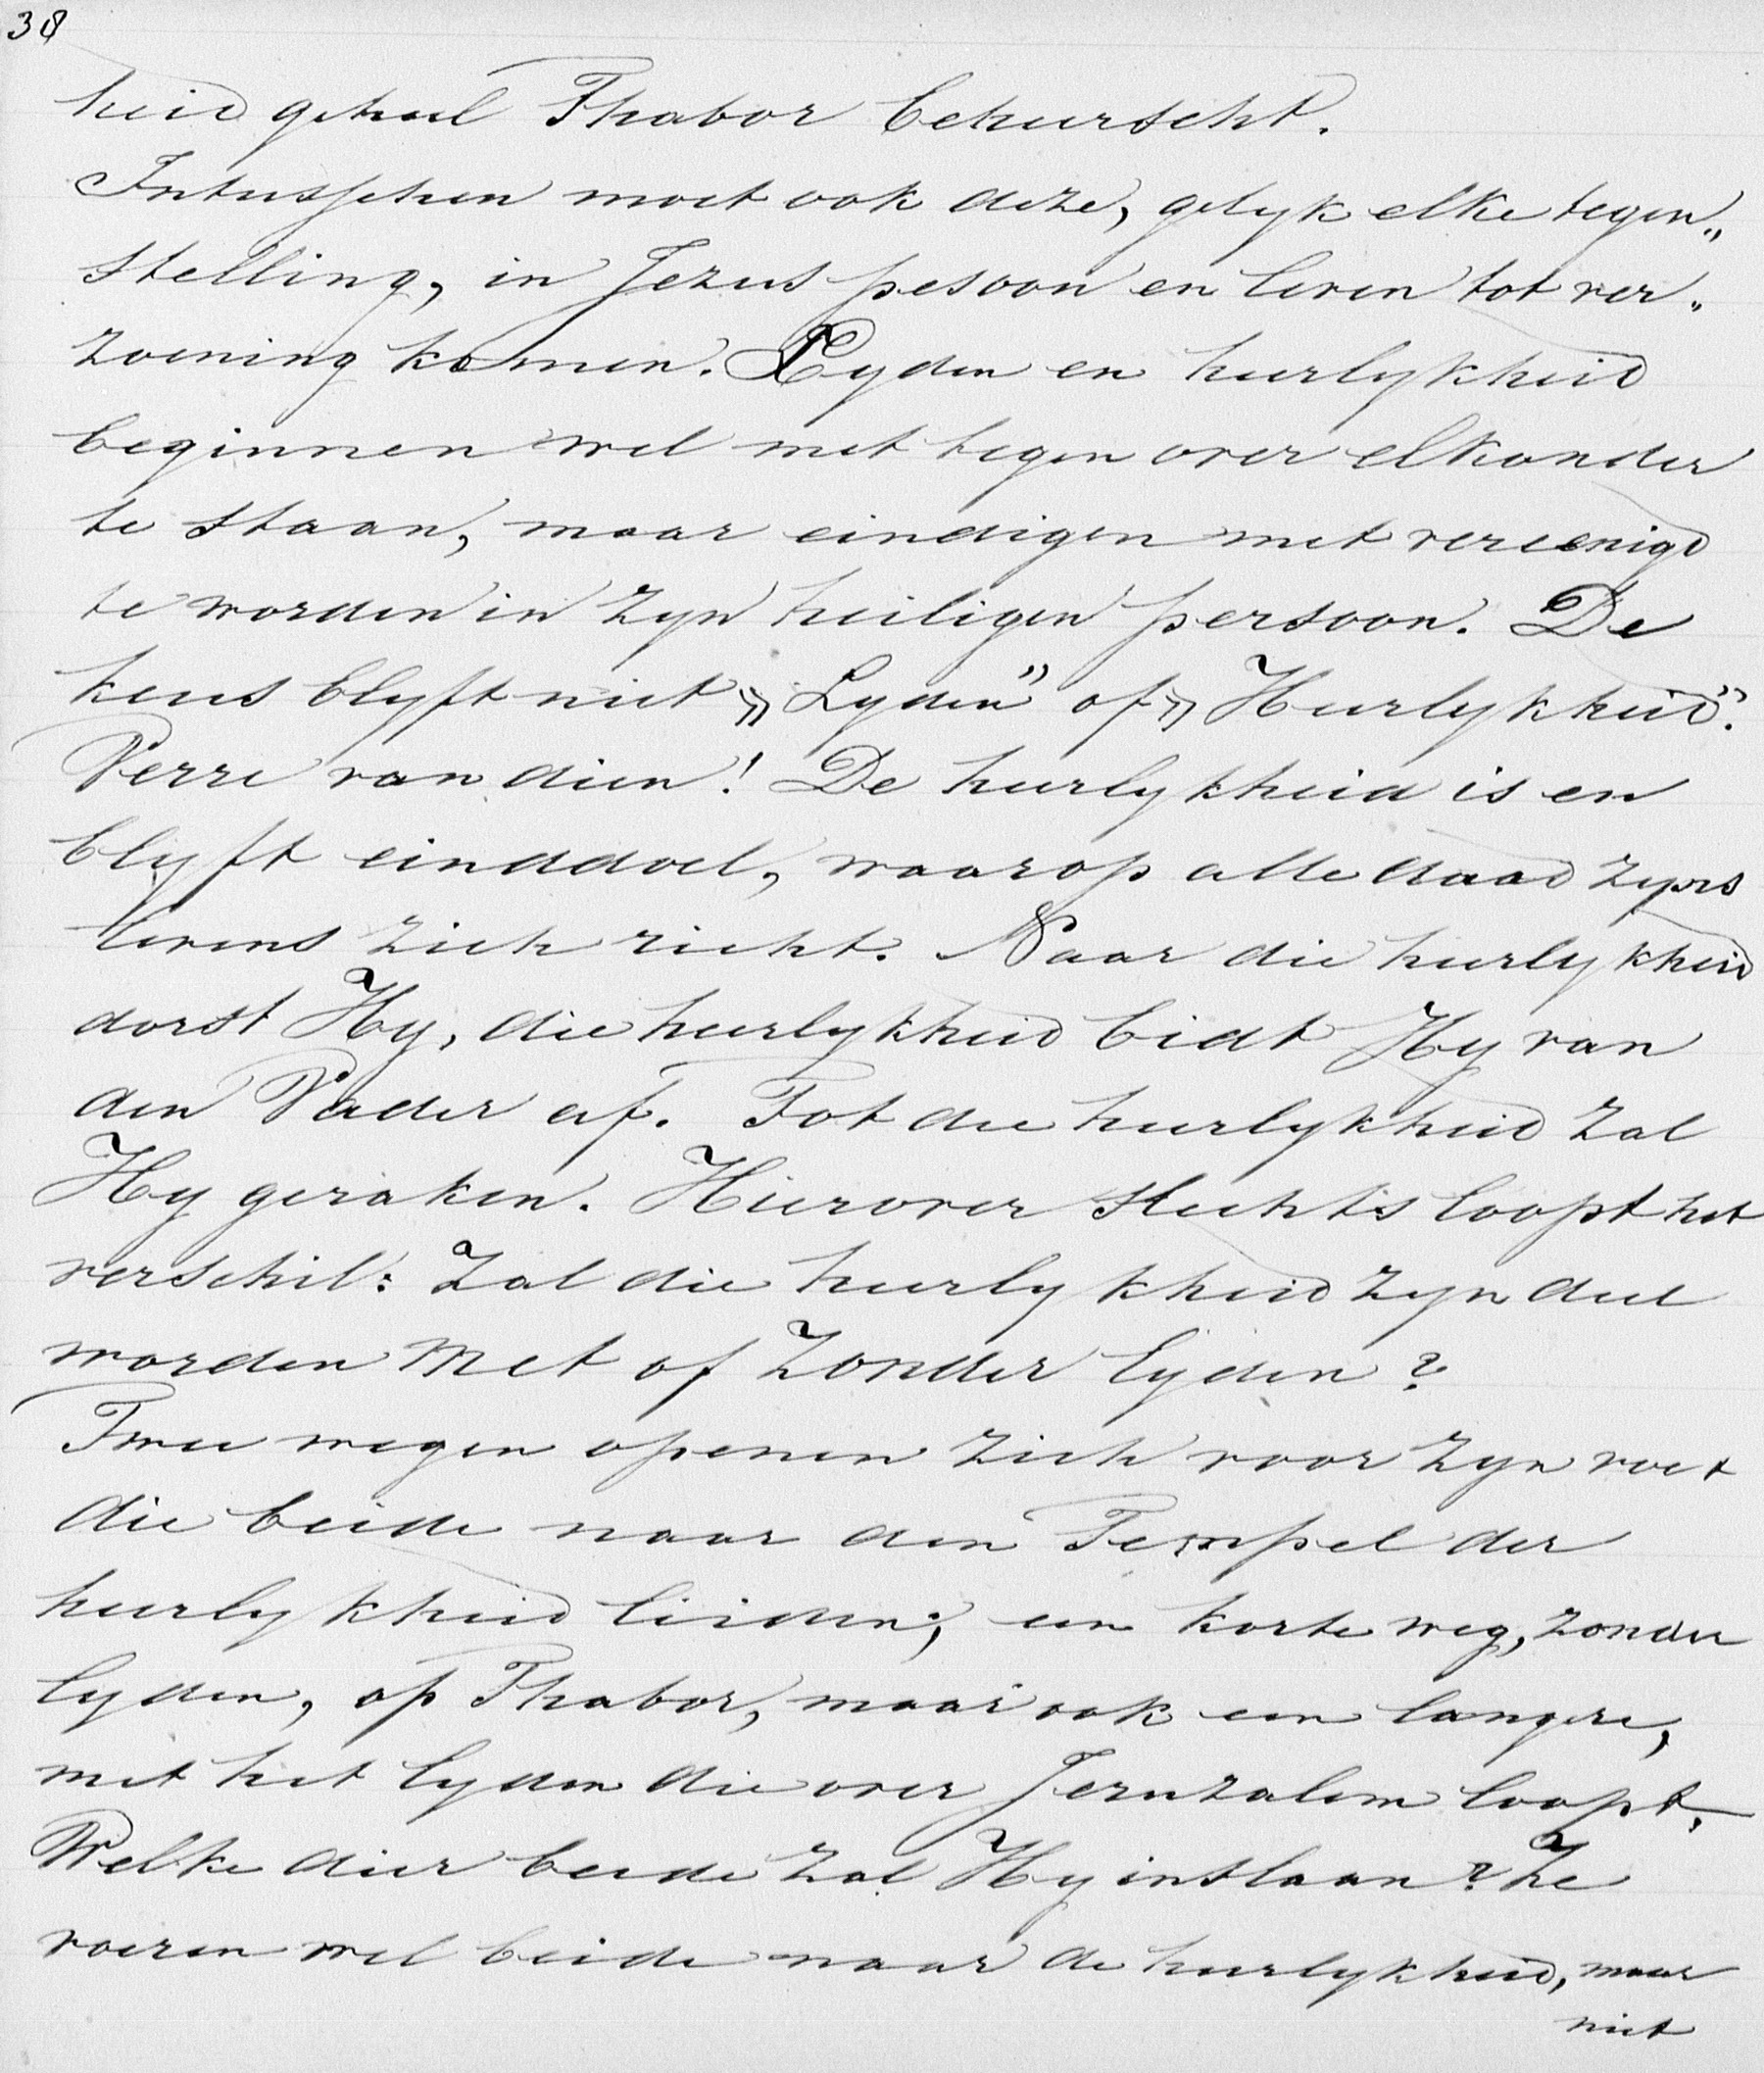 38
heid geheel Thabor beheerscht.
Intusschen moet ook deze, gelyk elke tegen„
stelling, in Jezus pesoon en leven tot ver„
zoening komen. Lyden en heerlykheid
beginnen wel met tegen over elkander
te staan, maar eindigen met vereenigd
te worden in zyn heiligen persoon. De
keus blyft niet „Lyden” of „Heerlykheid”.
Verre van dien! De heerlykheid is en
blyft einddoel, waarop alle daad zyns
levens zich richt. Naar die heerlykheid
dorst Hy, die heerlykheid bidt Hy van
den Vader af. Tot die heerlykheid zal
Hy geraken. Hierover slechts loopt het
verschil: Zal die heerlykheid zyn deel
worden met of zonder lyden?
Twee wegen openen zich voor zyn voet
die beide naar den Tempel der
heerlykheid leiden; een korte weg, zonder
lyden, op Thabor, maar ook een langere,
met het lyden die over Jeruzalem loopt.
Welke dier beide zal Hy inslaan? Ze
voeren wel beide naar de heerlykheid, maar
niet